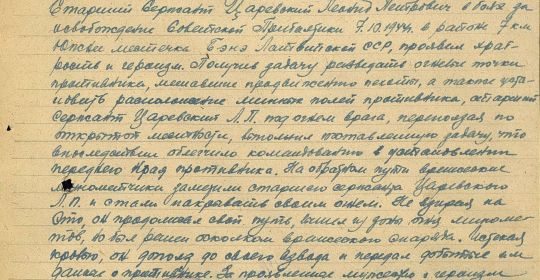 Старший Сержант Царевский Леонид Петрович в боях за
освобождение Советской Прибалтики 7.10.1944г. в районе 7 км.
местечка Бэнэ Латвийской ССР, проявил храб-
рость и героизм. Получив задачу разведать огневые точки
противника, мешавшие продвижению пехоты, а также уста-
новить расположение минных полей противника, старший
сержант Царевский Л.П. под огнем врага, переползая по
открытой местности, выполнил поставленную задачу, что
впоследствии облегчило командованию в установлении
переднего края противника. На обратном пути вражеские
минометчики заметили старшего сержанта Царевского
Л.П. и стали накрывать своим огнем. Не взирая на
это, он продолжал свой путь, вышел из зоны огня миноме-
тов, но был ранен осколком вражеского снаряда. Истекая
кровью, он дополз до своего взвода и передал добытые им
данные о противнике. За проявленное мужество и героизм